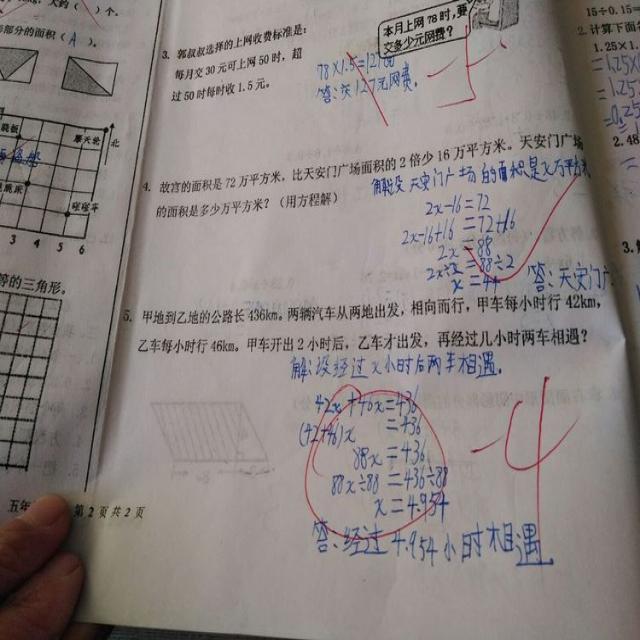 个。
部分的面积（ A ）。
北
摩天轮
3 4 5 6
等的三角形。
第 2 页 共 2 页
3. 郭叔叔选择的上网收费标准是：
每月交 30 元可上网 50 时，超
过 50 时每时收 1.5 元。
本月上网 78 时，要
交多少元网费？
-5
4. 故宫的面积是 72 万平方米，比天安门广场面积的 2 倍少 16 万平方米。天安门广场
的面积是多少万平方米？（用方程解）
解设天安门广场的面积是x万平方
2x-16=72
2x-16+16=72+16
2x=88
2x÷2=88÷2
x=44
答：天安门广
5. 甲地到乙地的公路长 436km。两辆汽车从两地出发，相向而行，甲车每小时行 42km，
乙车每小时行 46km。甲车开出 2 小时后，乙车才出发，再经过几小时两车相遇？
解：设经过x小时后两车相遇。
42x+46x=436
(42+46)x=436
88x=436
88x÷88=436÷88
x=4.954
答：经过4.954小时相遇
-4
15÷0.15=
2. 计算下面
1.25×1
2.48
3.